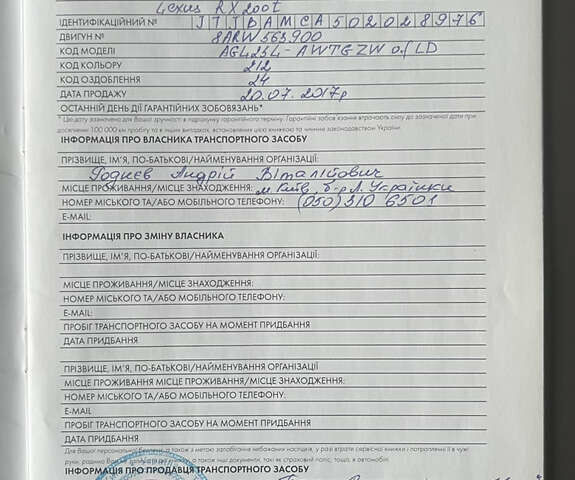 Lexus RX200t
ІДЕНТИФІКАЦІЙНИЙ № JTJBAMCA502028976
ДВИГУН № 8ARW563900
КОД МОДЕЛІ AGL25L-AWTGZW
КОД КОЛЬОРУ 212
КОД ОЗДОБЛЕННЯ 24
ДАТА ПРОДАЖУ 20.07.2017р
ОСТАННІЙ ДЕНЬ ДІЇ ГАРАНТІЙНИХ ЗОБОВ'ЯЗАНЬ*
* Цю дату зазначено для Вашої зручності в підрахунку гарантійного терміну. Гарантійні зобов'язання втрачають силу до зазначеної дати при
досягненні 100 000 км пробігу та в інших випадках, встановлених цією книжкою та чинним законодавством України.
ІНФОРМАЦІЯ ПРО ВЛАСНИКА ТРАНСПОРТНОГО ЗАСОБУ
ПРІЗВИЩЕ, ІМ'Я, ПО-БАТЬКОВІ/НАЙМЕНУВАННЯ ОРГАНІЗАЦІЇ:
Андрій Віталійович
МІСЦЕ ПРОЖИВАННЯ/МІСЦЕ ЗНАХОДЖЕННЯ: м Київ, б-р Л. Українки
НОМЕР МІСЬКОГО ТА/АБО МОБІЛЬНОГО ТЕЛЕФОНУ: (050) 310 6501
E-MAIL:
ІНФОРМАЦІЯ ПРО ЗМІНУ ВЛАСНИКА
ПРІЗВИЩЕ, ІМ'Я, ПО-БАТЬКОВІ/НАЙМЕНУВАННЯ ОРГАНІЗАЦІЇ:
МІСЦЕ ПРОЖИВАННЯ/МІСЦЕ ЗНАХОДЖЕННЯ:
НОМЕР МІСЬКОГО ТА/АБО МОБІЛЬНОГО ТЕЛЕФОНУ:
E-MAIL:
ПРОБІГ ТРАНСПОРТНОГО ЗАСОБУ НА МОМЕНТ ПРИДБАННЯ
ДАТА ПРИДБАННЯ
ПРІЗВИЩЕ, ІМ'Я, ПО-БАТЬКОВІ/НАЙМЕНУВАННЯ ОРГАНІЗАЦІЇ
МІСЦЕ ПРОЖИВАННЯ МІСЦЕ ПРОЖИВАННЯ/МІСЦЕ ЗНАХОДЖЕННЯ:
НОМЕР МІСЬКОГО ТА/АБО МОБІЛЬНОГО ТЕЛЕФОНУ:
E-MAIL
ПРОБІГ ТРАНСПОРТНОГО ЗАСОБУ НА МОМЕНТ ПРИДБАННЯ
ДАТА ПРИДБАННЯ
Для Вашої персональної безпеки, а також з метою запобігання небажаних наслідків, у разі втрати сервісної книжки і потраплянні її в чужі
руки, радимо Вам не а також інші документи, такі як страховий поліс, тощо, в автомобілі.
ІНФОРМАЦІЯ ПРО ПРОДАВЦЯ ТРАНСПОРТНОГО ЗАСОБУ